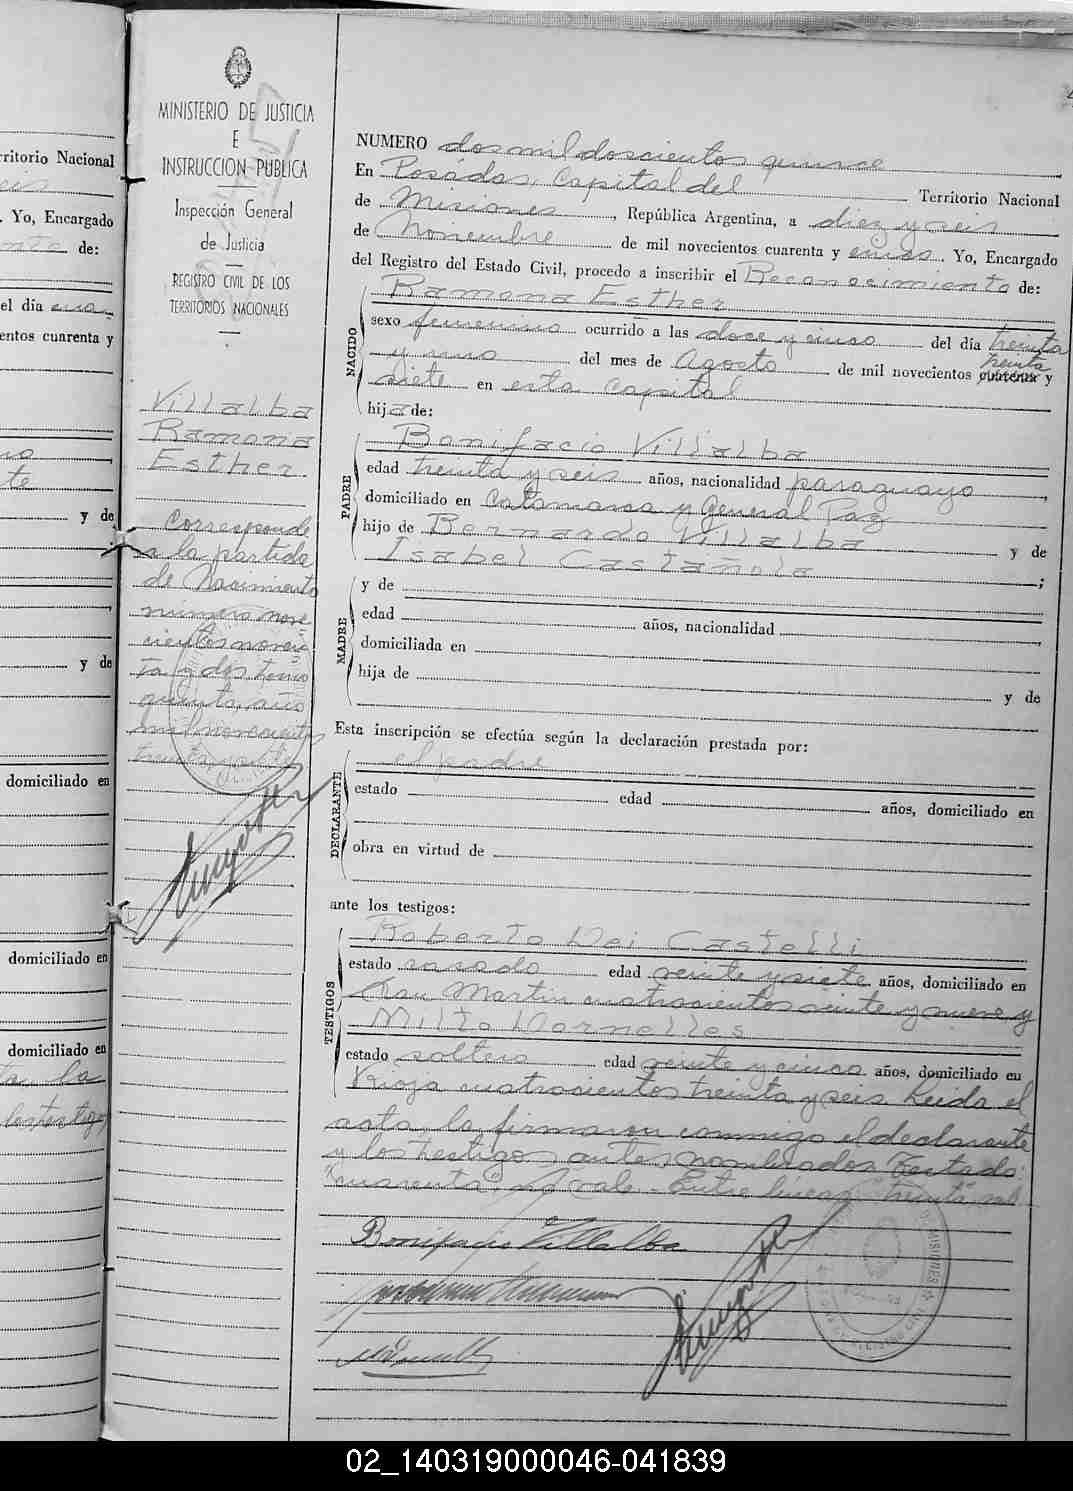 MINISTERIO DE JUSTICIA
E
INSTRUCCION PUBLICA
Inspección General
de Justicia
REGISTRO CIVIL DE LOS
TERRITORIOS NACIONALES
Villalba
Ramona
Esther
Corresponde
a la partida
de Nacimiento
número nove
cientos noven
ta y dos tomo
quinto, año
mil novecientos
treinta y siete
NUMERO dos mil doscientos quince
En Posadas, Capital del Territorio Nacional
de Misiones, República Argentina, a diez y seis
de Noviembre de mil novecientos cuarenta y cinco. Yo, Encargado
del Registro del Estado Civil, procedo a inscribir el Reconocimiento de:
NACIDO
Ramona Esther
sexo femenino ocurrido a las doce y cinco del día treinta
y uno del mes de Agosto de mil novecientos cuarenta y
treinta
siete en esta capital
hija de:
PADRE
Bonifacio Villalba
edad treinta y seis años, nacionalidad paraguayo
domiciliado en Catamarca y General Paz
hijo de Bernardo Villalba y de
Isabel Castañola ;
MADRE
y de
edad años, nacionalidad
domiciliada en
hija de y de
Esta inscripción se efectúa según la declaración prestada por:
DECLARANTE
el padre
estado edad años, domiciliado en
obra en virtud de
ante los testigos:
TESTIGOS
Roberto Dei Castelli
estado casado edad veinte y siete años, domiciliado en
San Martin cuatrocientos veinte y nueve y
Milto Dornelles
estado soltero edad veinte y cinco años, domiciliado en
Rioja cuatrocientos treinta y seis. Leida el
acta, la firmaron conmigo el declarante
y los testigos antes nombrados. Testado:
"cuarenta", no vale. Entre lineas: "treinta" vale
Bonifacio Villalba
rritorio Nacional
. Yo, Encargado
de:
el día
entos cuarenta y
y de
y de
domiciliado en
domiciliado en
domiciliado en
los testigos
02_140319000046-041839